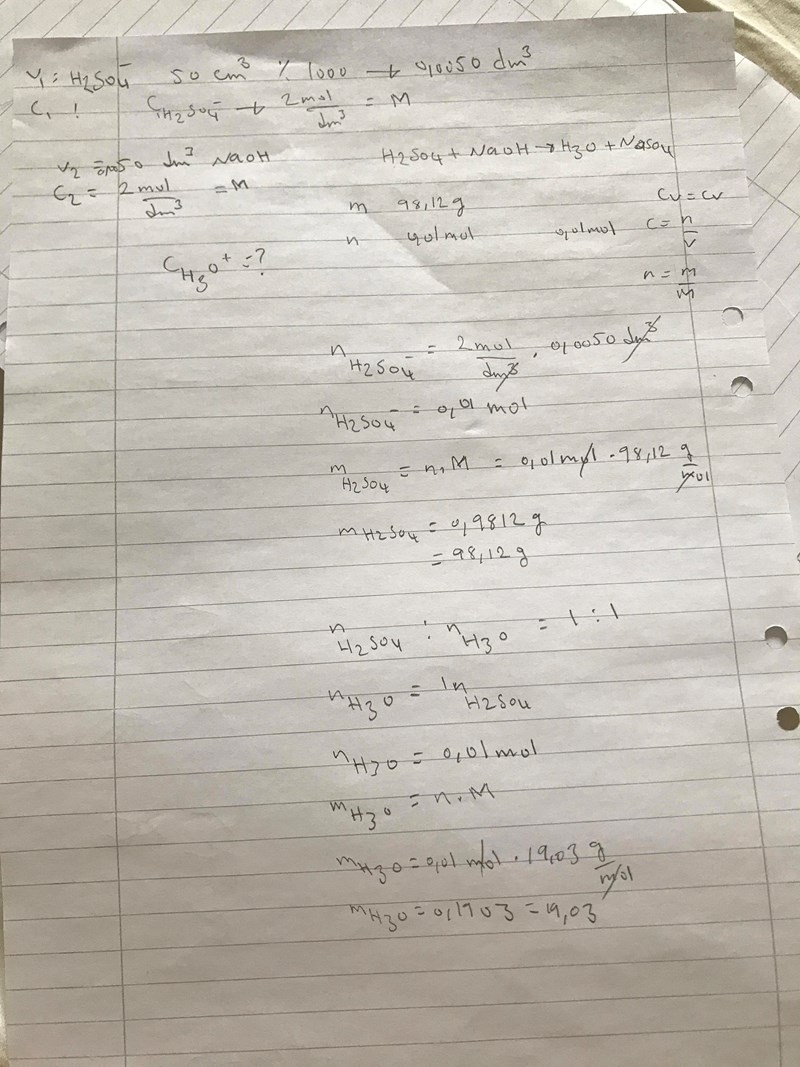 V₁ = H₂SO₄⁻ 50 cm³ % 1000 → 0,0050 dm³
C₁ ! C H₂SO₄⁻ → 2 mol/dm³ = M
V₂ = 0,0050 dm³ NaOH
H₂SO₄ + NaOH → H₃O + NaSO₄
C₂ = 2 mol/dm³ = M
m 98,12 g
CV = CV
n 0,01mol 0,01mol C = n/V
C H₃O⁺ = ?
n = m/M
n H₂SO₄⁻ = 2 mol/dm³ · 0,0050 dm³
n H₂SO₄⁻ = 0,01 mol
m H₂SO₄ = n. M = 0,01 mol · 98,12 g/mol
m H₂SO₄ = 0,9812 g
= 98,12 g
n H₂SO₄ : n H₃O = 1 : 1
n H₃O = 1n H₂SO₄
n H₃O = 0,01 mol
m H₃O = n. M
m H₃O = 0,01 mol · 19,03 g/mol
m H₃O = 0,1903 = 19,03